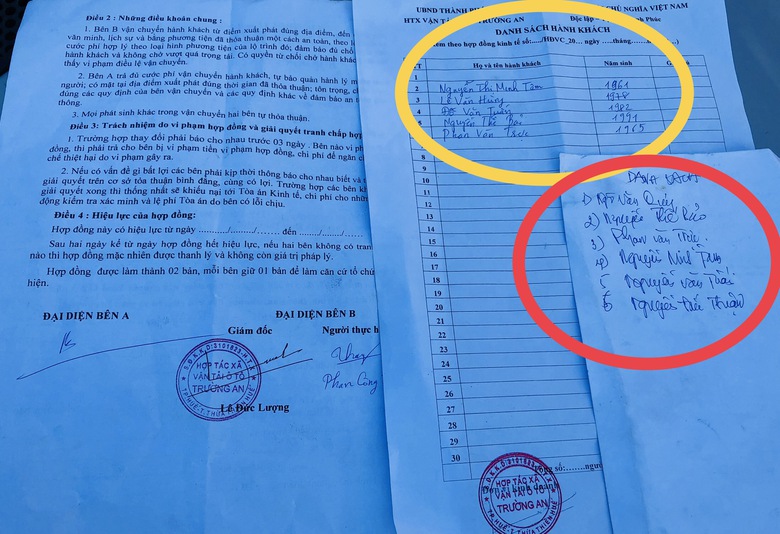 Điều 2 : Những điều khoản chung :
1. Bên B vận chuyển hành khách từ điểm xuất phát đúng địa điểm, đến
văn minh, lịch sự và bằng phương tiện đã thỏa thuận một cách an toàn, theo
cước phí hợp lý theo loại hình phương tiện của lộ trình đó; đảm bảo đủ
hành khách và không chở vượt quá trọng tải. Có quyền từ chối chở hành khách
thấy vi phạm điều lệ vận chuyển.
2. Bên A trả đủ cước phí vận chuyển hành khách, tự bảo quản hành lý
có mặt tại địa điểm xuất phát đúng thời gian đã thỏa thuận; tôn trọng,
đúng các quy định của bên vận chuyển và các quy định khác về đảm bảo an
thông.
3. Mọi phát sinh khác trong vận chuyển hai bên tự thỏa thuận.
Điều 3: Trách nhiệm do vi phạm hợp đồng và giải quyết tranh chấp hợp
1. Trường hợp thay đổi phải báo cho nhau trước 03 ngày . Bên nào vi
đồng, thì phải trả cho bên bị vi phạm tiền vi phạm hợp đồng, chi phí để ngăn
chế thiệt hại do vi phạm gây ra.
2. Nếu có vấn đề gì bất lợi các bên phải kịp thời thông báo cho nhau biết và
giải quyết trên cơ sở thỏa thuận bình đẳng, cùng có lợi. Trường hợp các bên
giải quyết xong thì thống nhất sẽ khiếu nại tới Tòa án Kinh tế, chi phí cho những
động kiểm tra xác minh và lệ phí Tòa án do bên có lỗi chịu.
Điều 4 : Hiệu lực của hợp đồng:
Hợp đồng này có hiệu lực từ ngày ...../...../...... đến ...../...../.....
Sau hai ngày kể từ ngày hợp đồng hết hiệu lực, nếu hai bên không có
nào thì hợp đồng mặc nhiên được thanh lý và không còn giá trị pháp lý.
Hợp đồng được làm thành 02 bản, mỗi bên giữ 01 bản để làm căn cứ tổ
hiện.
ĐẠI DIỆN BÊN A
ĐẠI DIỆN BÊN B
Giám đốc
Người thực
S.Đ.K.K.D:3101823-H.T.X
HỢP TÁC XÃ
VẬN TẢI Ô TÔ
TRƯỜNG AN
TP.HUẾ-T.THỪA THIÊN HUẾ
Phan Công
Lê Đức Lượng
UBND THÀNH
CHỦ NGHĨA VIỆT NAM
HTX VẬN
TRƯỜNG AN
Độc lập
Phúc
DANH SÁCH HÀNH KHÁCH
kèm theo hợp đồng kinh tế số:...../HĐVC_20... ngày .....tháng......
Họ và tên hành khách
Năm sinh
1
2 Nguyễn Thị Minh Tâm 1961
3 Lê Văn Hùng 1978
4 Đỗ Văn Tuấn 1982
5 Nguyễn Thế 1991
6 Phan Văn 1965
8
9
10
11
12
13
14
15
16
17
18
19
20
21
22
23
24
25
26
27
28
29
30
số:.......
Đơn vị kinh doanh
S.Đ.K.K.D:3101823-H.T.X
HỢP TÁC XÃ
VẬN TẢI Ô TÔ
TRƯỜNG AN
TP.HUẾ-T.THỪA THIÊN HUẾ
DANH SÁCH
1) Văn Quý
2) Nguyễn Thế Bảo
3) Phan Văn
4) Nguyễn
5 Nguyễn Văn Thái
6 Nguyễn Thuận